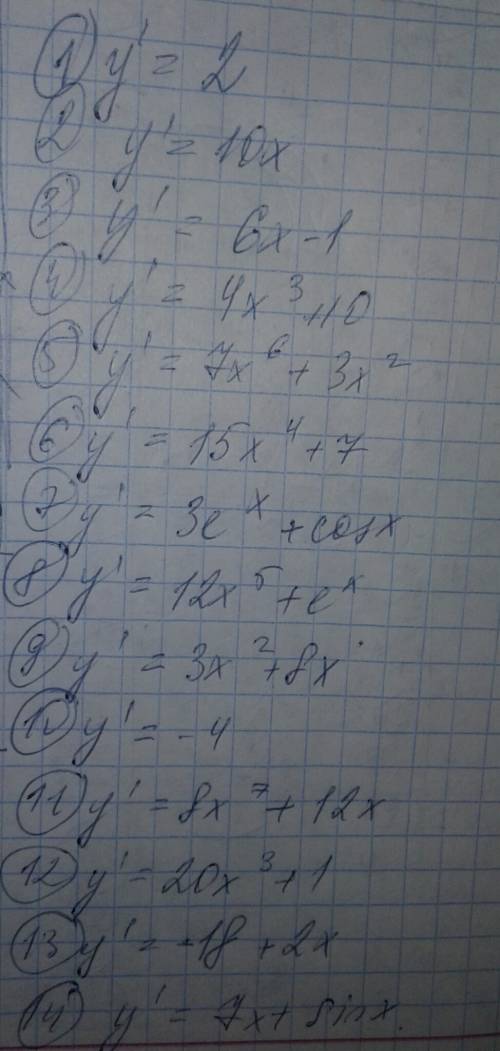 1 y' = 2
2 y' = 10x
3 y' = 6x-1
4 y' = 4x³+10
5 y' = 7x⁶+3x²
6 y' = 15x⁴+7
7 y' = 3eˣ+cosx
8 y' = 12x⁵+eˣ
9 y' = 3x²+8x
10 y' = -4
11 y' = 8x⁷+12x
12 y' = 20x³+1
13 y' = -18+2x
14 y' = 7x+sinx.